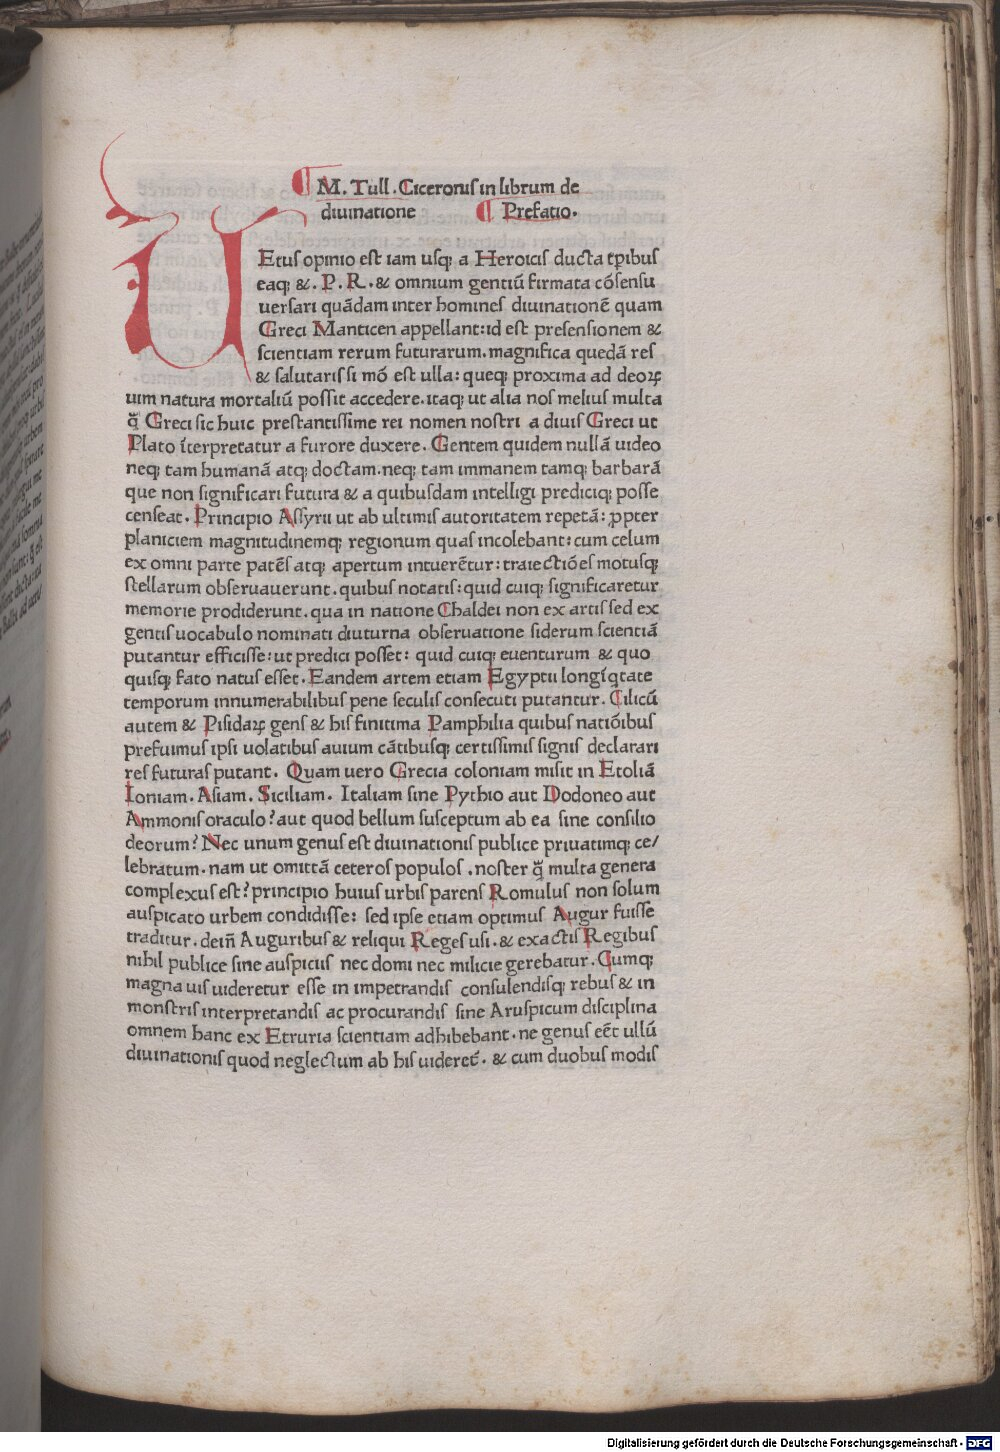 ¶ M. Tull. Ciceronis in librum de
diuinatione ¶ Prefatio.
UEtus opinio est iam usqꝫ a Heroicis ducta tꝑibus
eaqꝫ &. P. R. & omnium gentiū firmata cōsensu
uersari quādam inter homines diuinationē quam
Greci Manticen appellant: id est presensionem &
scientiam rerum futurarum. magnifica quedā res
& salutaris si mō est ulla: queqꝫ proxima ad deoꝝ
uim natura mortaliū possit accedere. itaqꝫ ut alia nos melius multa
q̄ Greci sic huic prestantissime rei nomen nostri a diuis Greci ut
Plato īterpretatur a furore duxere. Gentem quidem nullā uideo
neqꝫ tam humanā atqꝫ doctam. neqꝫ tam immanem tamqꝫ barbarā
que non significari futura & a quibusdam intelligi prediciqꝫ posse
censeat. Principio Assyrii ut ab ultimis autoritatem repetā: ꝓpter
planiciem magnitudinemqꝫ regionum quas incolebant: cum celum
ex omni parte patēs atqꝫ apertum intuerētur: traiectiōes motusqꝫ
stellarum obseruauerunt. quibus notatis: quid cuiqꝫ significaretur
memorie prodiderunt. qua in natione Chaldei non ex artis sed ex
gentis uocabulo nominati diuturna obseruatione siderum scientiā
putantur effecisse: ut predici posset: quid cuiqꝫ euenturum & quo
quisqꝫ fato natus esset. Eandem artem etiam Egyptii longīqtate
temporum innumerabilibus pene seculis consecuti putantur. Cilicū
autem & Pisidaꝝ gens & his finitima Pamphilia quibus natiōibus
prefuimus ipsi uolatibus auium cātibusqꝫ certissimis signis declarari
res futuras putant. Quam uero Grecia coloniam misit in Etoliā
Ioniam. Asiam. Siciliam. Italiam sine Pythio aut Dodoneo aut
Ammonis oraculo? aut quod bellum susceptum ab ea sine consilio
deorum? Nec unum genus est diuinationis publice priuatimqꝫ ce/
lebratum. nam ut omittā ceteros populos. noster q̄ multa genera
complexus est? principio huius urbis parens Romulus non solum
auspicato urbem condidisse: sed ipse etiam optimus Augur fuisse
traditur. dein̄ Auguribus & reliqui Reges usi. & exactis Regibus
nihil publice sine auspiciis nec domi nec milicie gerebatur. Cumqꝫ
magna uis uideretur esse in impetrandis consulendisqꝫ rebus & in
monstris interpretandis ac procurandis sine Aruspicum disciplina
omnem hanc ex Etruria scientiam adhibebant. ne genus eēt ullū
diuinationis quod neglectum ab his uideret̄. & cum duobus modis
Digitalisierung gefördert durch die Deutsche Forschungsgemeinschaft - DFG